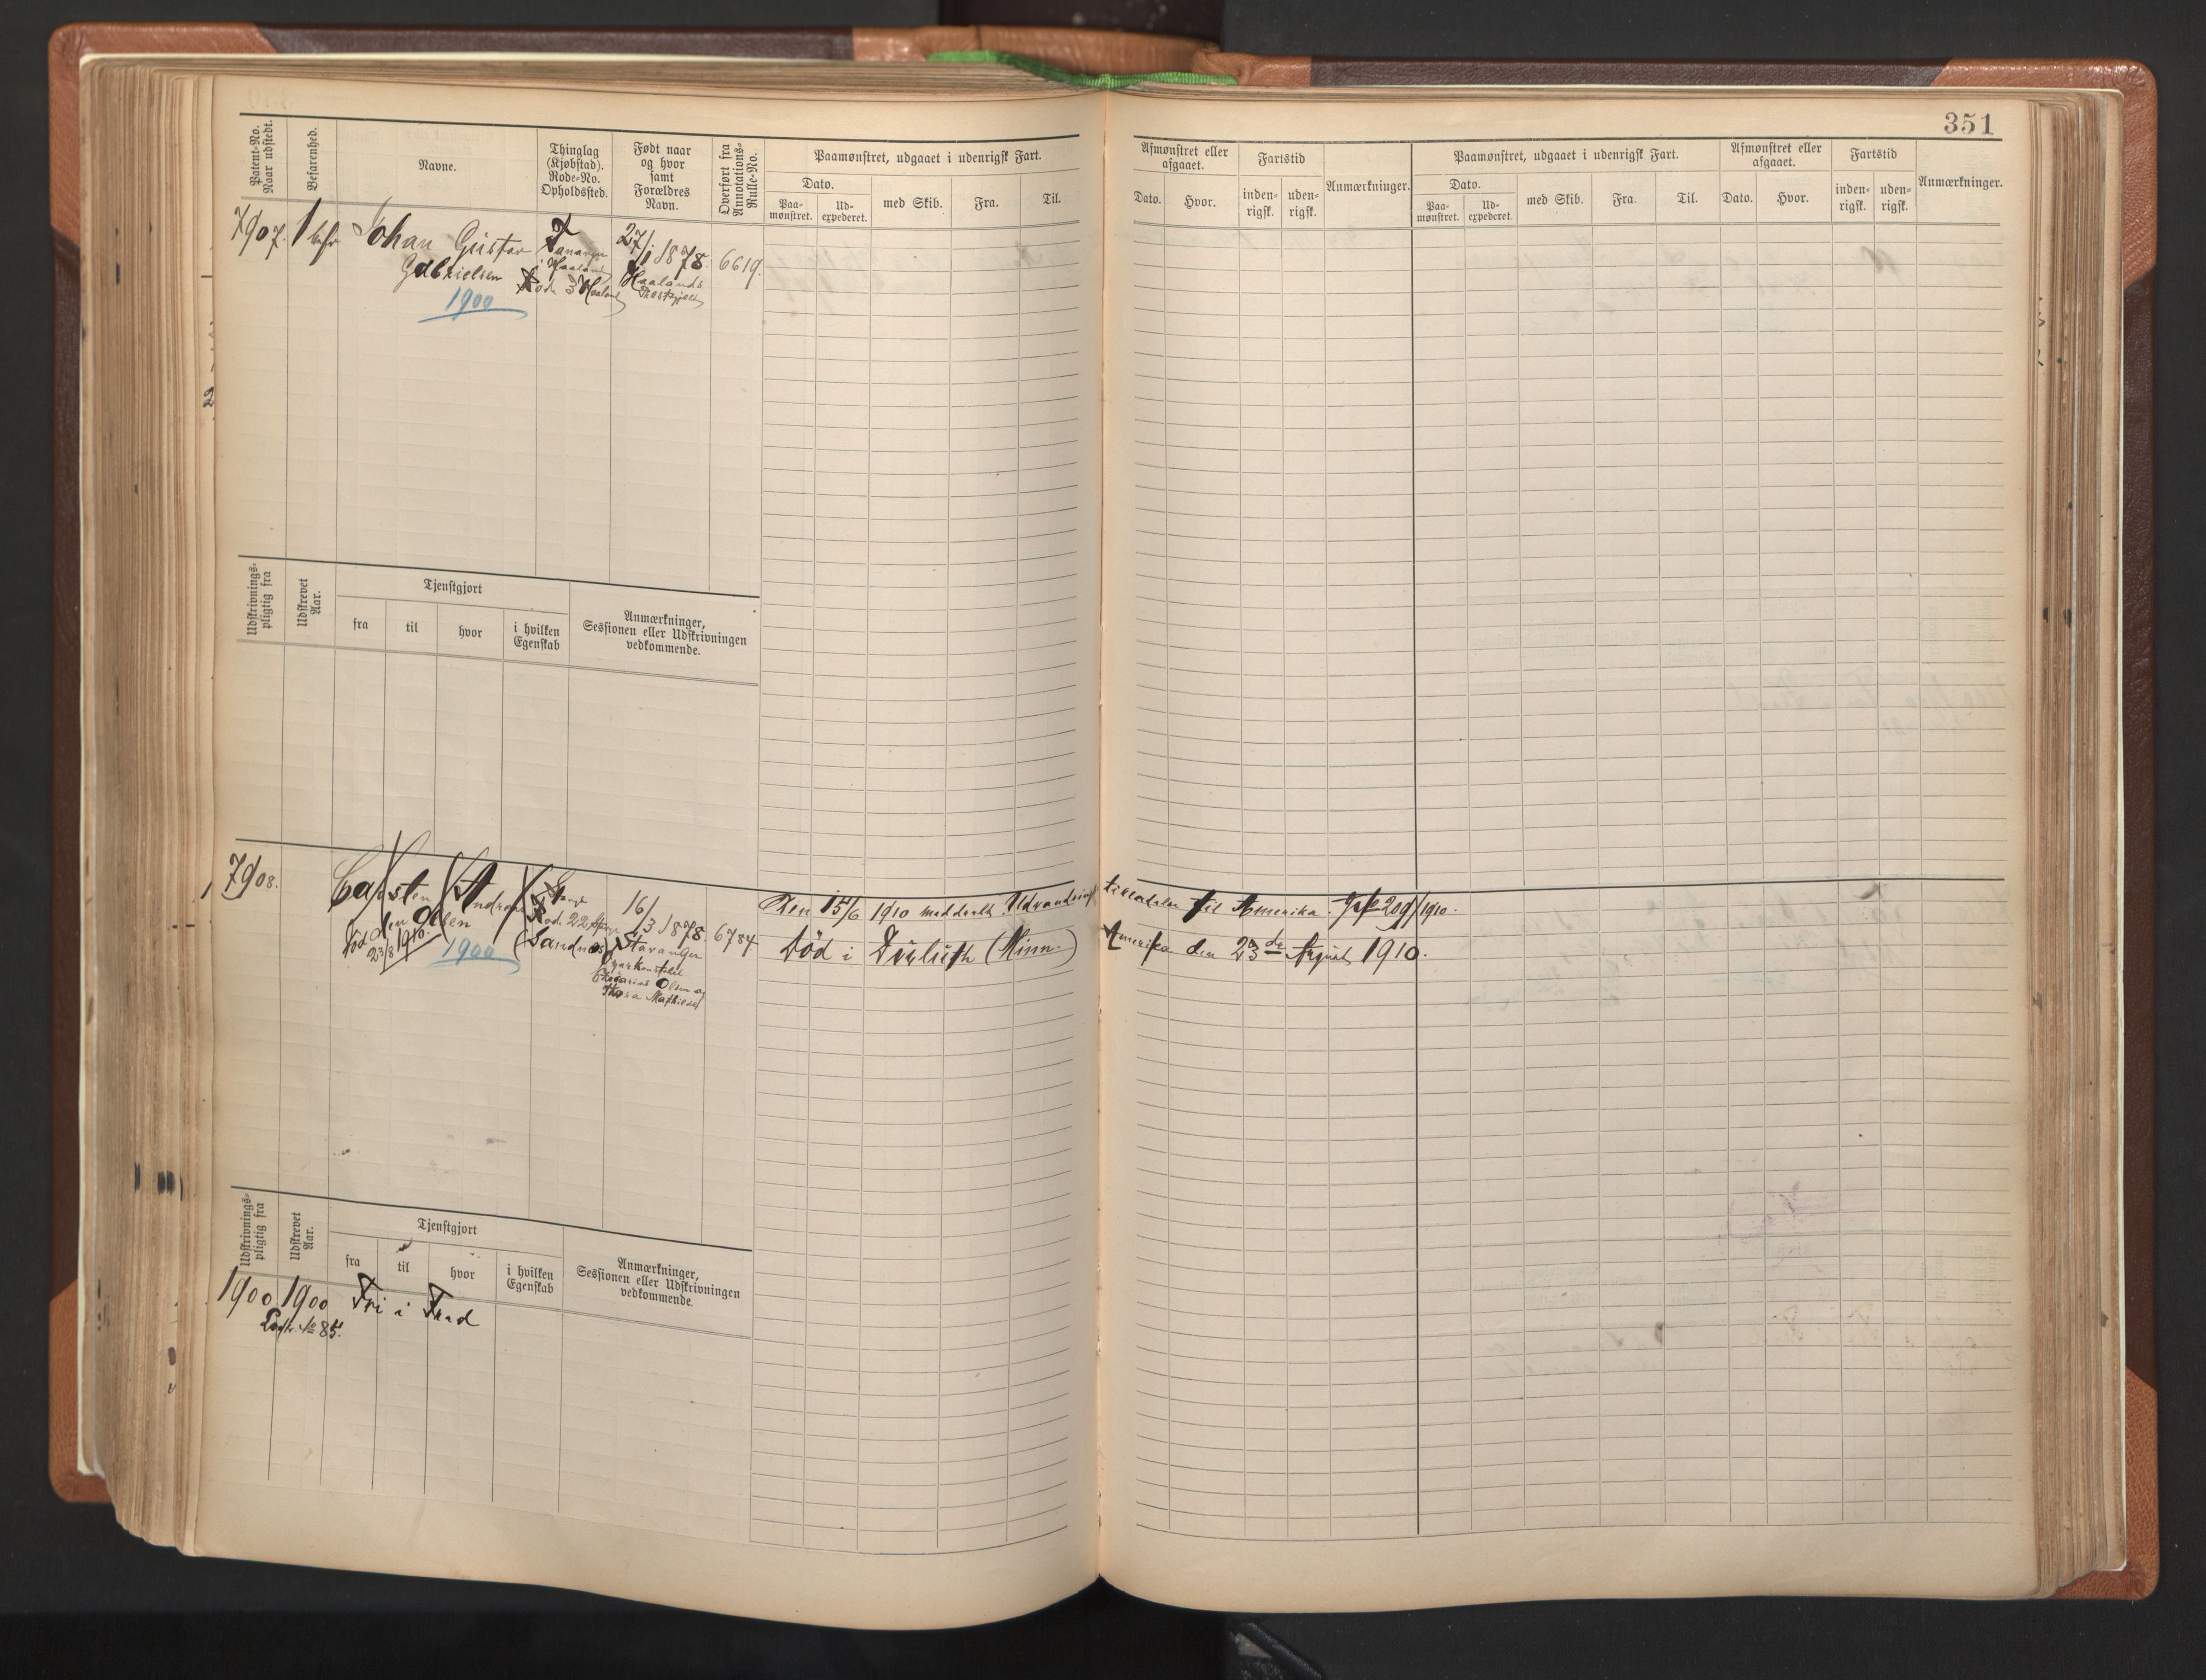 351
Patent-No.
Naar udstedt.
Befarenhed.
Navne.
Thinglag
(Kjøbstad).
Rode-No.
Opholdssted.
Født naar
og hvor
samt
Forældres
Navn.
Overført fra
Annotations-
Rulle-No.
Paamønstret, udgaaet i udenrigsk Fart.
Dato.
Paa-
mønstret.
Ud-
expederet.
med Skib.
Fra.
Til.
Afmønstret eller
afgaaet.
Dato.
Hvor.
Fartstid
inden-
rigsk.
uden-
rigsk.
Anmærkninger.
Paamønstret, udgaaet i udenrigsk Fart.
Dato.
Paa-
mønstret.
Ud-
expederet.
med Skib.
Fra.
Til.
Afmønstret eller
afgaaet.
Dato.
Hvor.
Fartstid
inden-
rigsk.
uden-
rigsk.
Anmærkninger.
7907.
1 befr
Johan Gustav
Gabrielsen
1900
Tananger
i Haaland
Rode 3 Haaland
27/1 1878.
Haalands
Præstegjeld
6619.
Udskrivnings-
pligtig fra
Udskrevet
Aar.
Tjenstgjort
fra
til
hvor
i hvilken
Egenskab
Anmærkninger,
Sessionen eller Udskrivningen
vedkommende.
7908.
Carsten Andreas
Olsen
død
23/8 1910.
1900
Rode 22
(Sandnes)
16/3 1878.
Stavanger
Olsen og
Thora Mathilde
6784
Den 15/6 1910 meddelt Udvandrings
tilladelse til Amerika. Jr 209/1910.
Död i Duluth (Minn.)
Amerika den 23de August 1910.
Udskrivnings-
pligtig fra
Udskrevet
Aar.
Tjenstgjort
fra
til
hvor
i hvilken
Egenskab
Anmærkninger,
Sessionen eller Udskrivningen
vedkommende.
1900
1900
Fri i Fred
No 85.